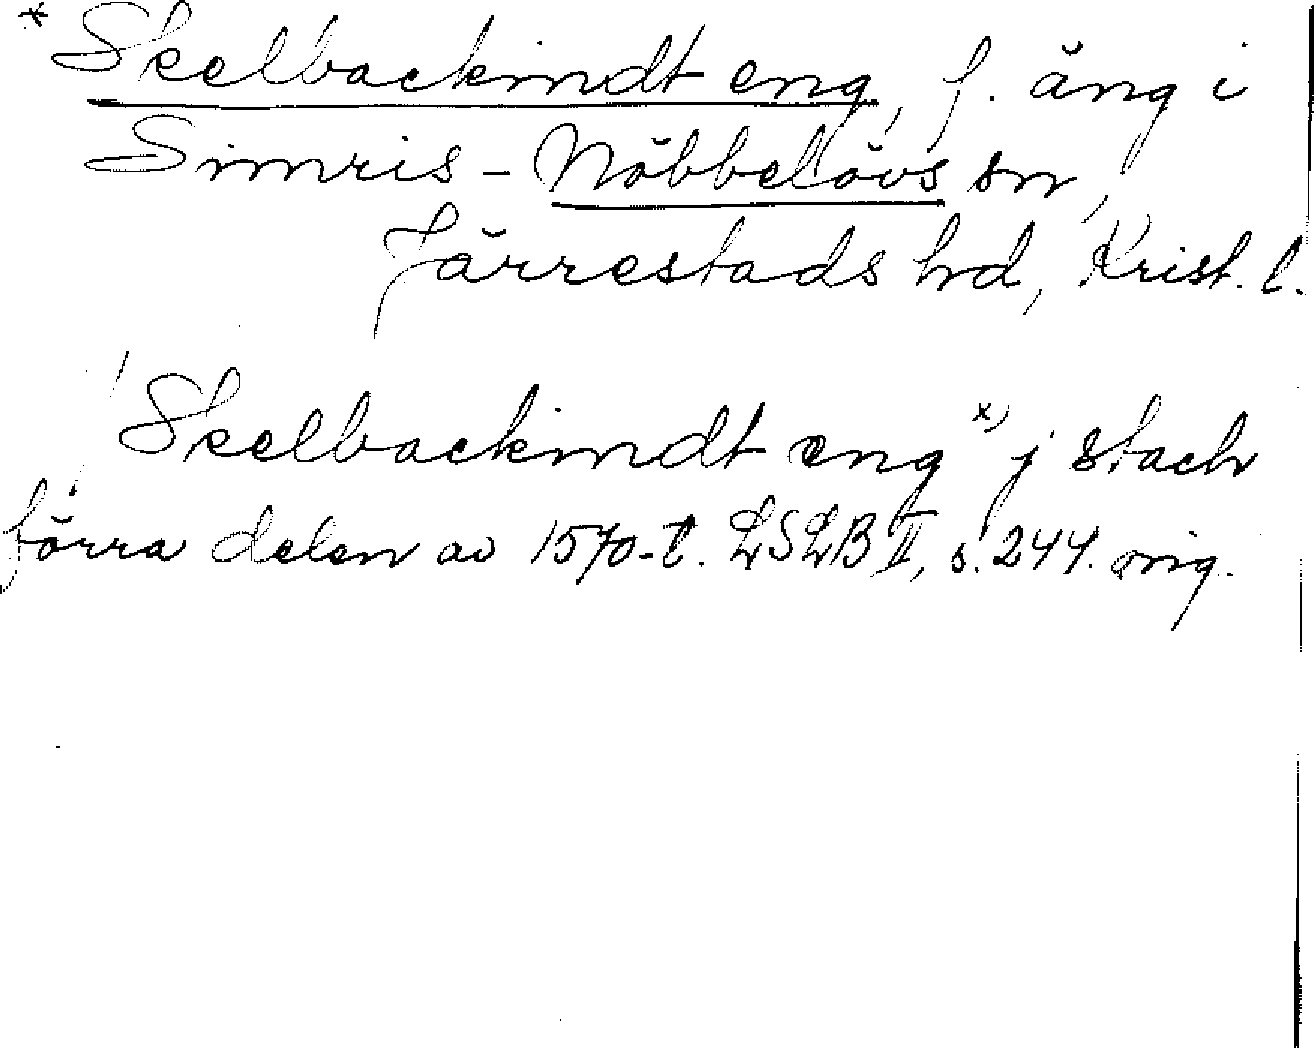 * Skelbackindt eng, f. äng i
Simris-Nöbbelövs sn,
Järrestads hd, Krist. l.
Skelbackindt eng x) j stach
förra delen av 1570-t. LSLB II, s. 244. orig.